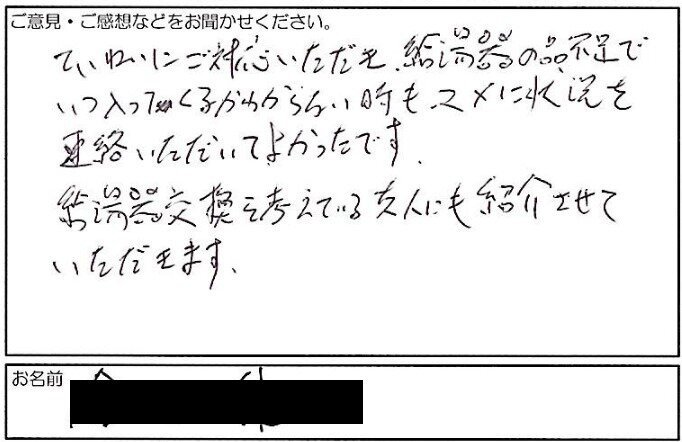 ご意見・ご感想などをお聞かせください。
ていねいにご対応いただき、給湯器の品不足で
いつ入ってくるかわからない時も、マメに状況を
連絡いただいてよかったです。
給湯器交換を考えている友人にも紹介させて
いただきます。
お名前